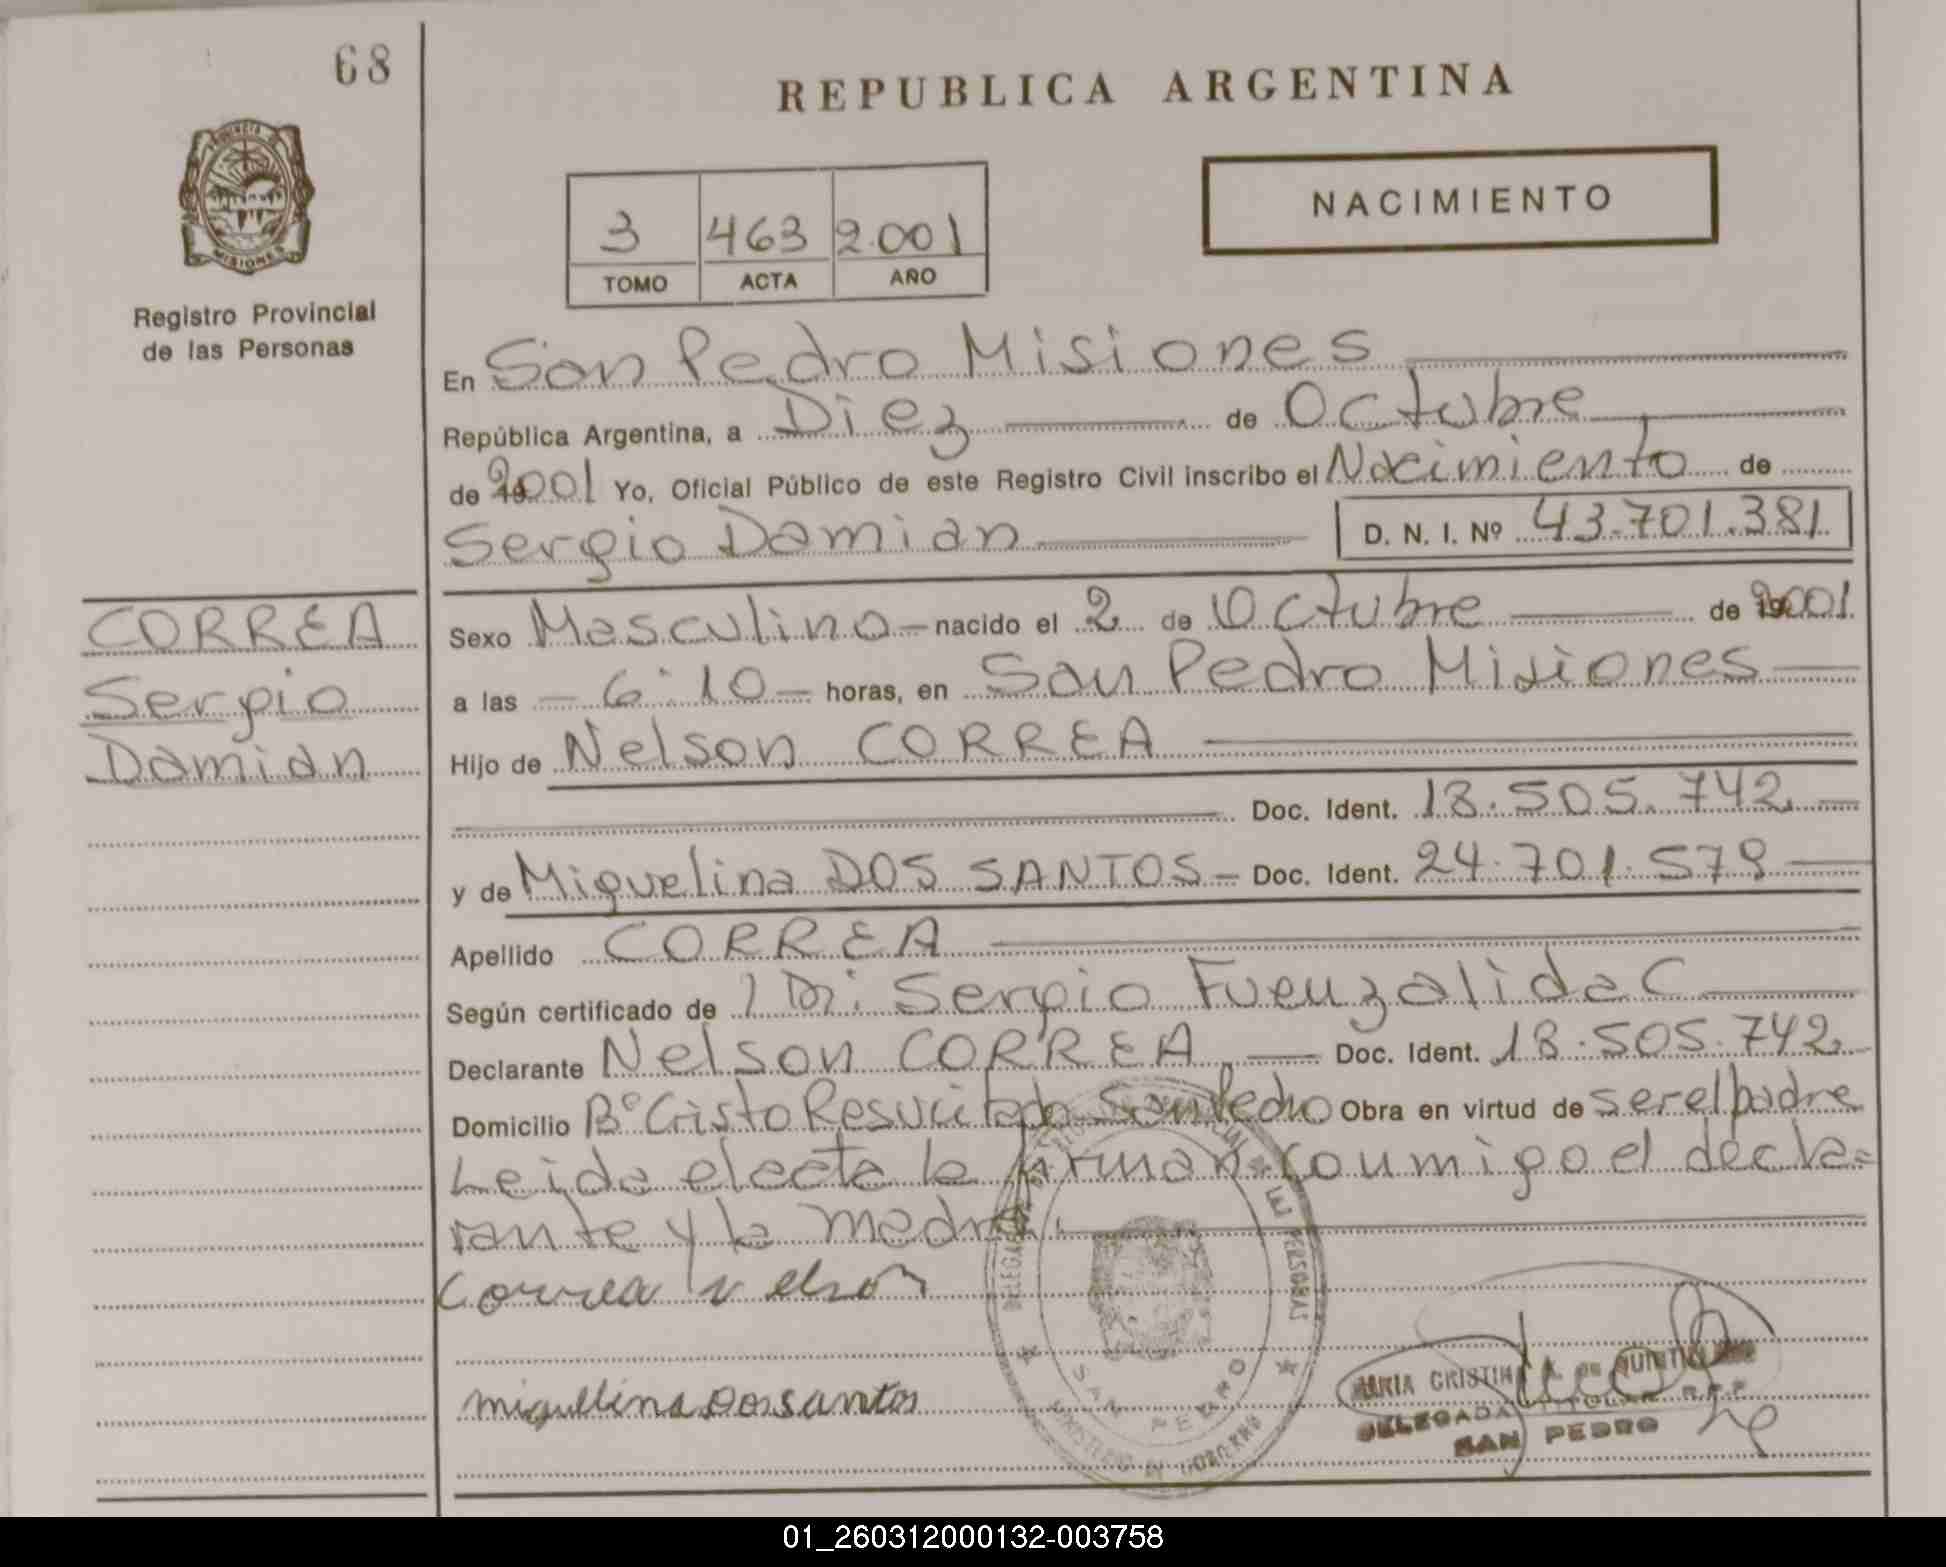 68
REPUBLICA ARGENTINA
NACIMIENTO
3 463 2.001
TOMO ACTA AÑO
MISIONES
Registro Provincial
de las Personas
En San Pedro Misiones
República Argentina, a Diez de Octubre
de 2001 Yo, Oficial Público de este Registro Civil inscribo el Nacimiento de
Sergio Damian D. N. I. Nº 43.701.381
CORREA
Sergio
Damian
Sexo Masculino nacido el 2 de Octubre de 2001
a las 6:10 horas, en San Pedro Misiones
Hijo de Nelson CORREA
Doc. Ident. 18.505.742
y de Miguelina DOS SANTOS Doc. Ident. 24.701.579
Apellido CORREA
Según certificado de Dr. Sergio Fuenzalida C
Declarante Nelson CORREA Doc. Ident. 18.505.742
Domicilio Bº Cristo Resucitado San Pedro Obra en virtud de ser el padre
Leida el acta la firman conmigo el decla=
rante y la madre.
Correa Nelson
miguelina Dos santos
SAN PEDRO
MINISTERIO DE GOBIERNO
MARIA CRISTINA
DELEGADA TITULAR R.P.P.
SAN PEDRO
01_260312000132-003758